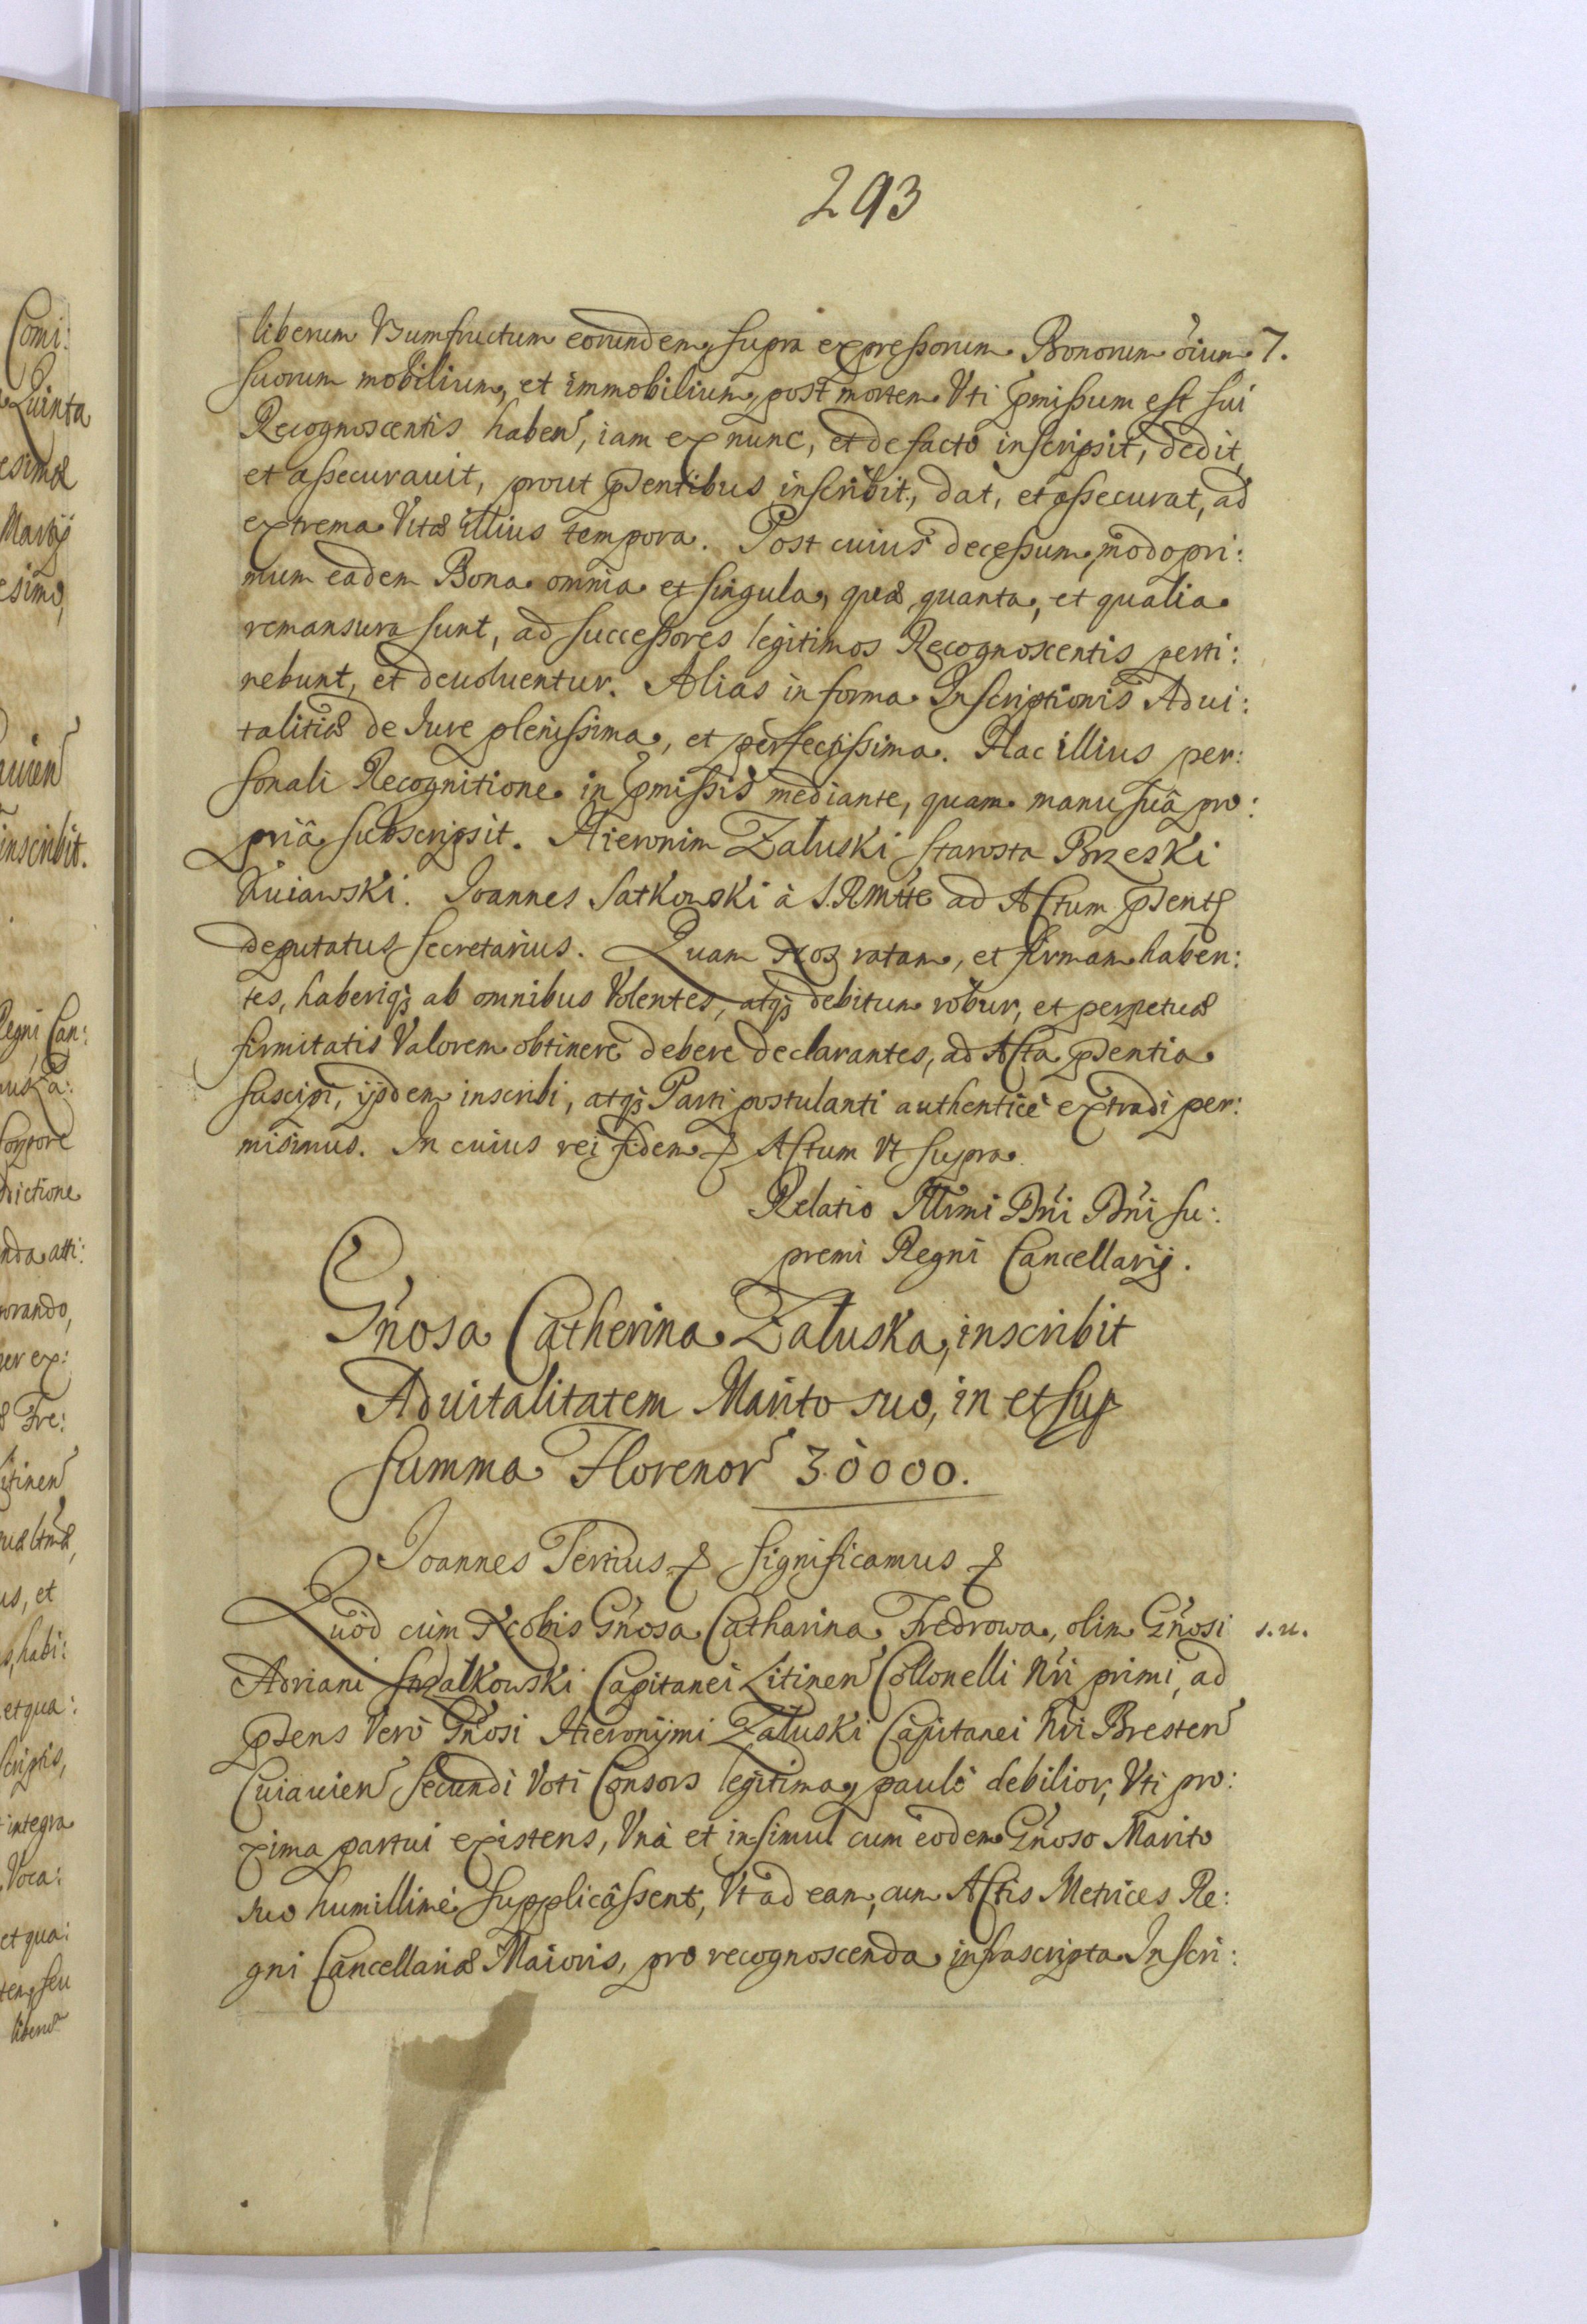 293
liberum Vsumfructum eorundem supra expressorum Bonorum oium 7.
suorum mobilium, et immobilium, post mortem Vti pmissum est sui
Recognoscentis haben, iam ex nunc, et de facto inscripsit, dedit,
et assecurauit, prout psentibus inscribit, dat, et assecurat, ad
extrema Vitæ illius tempora. Post cuius decessum, modo pri:
mum eadem Bona omnia et singula, quæ, quanta, et qualia
remansura sunt, ad successores legitimos Recognoscentis perti:
nebunt, et deuoluentur. Alias in forma Inscriptionis Adui:
talitiæ de Iure plenissima, et perfectissima. Hac illius per:
sonali Recognitione in pmissis mediante, quam manu suâ pro:
priâ subscripsit. Hieronim Załuski starosta Brzeski
Kuiawski. Ioannes Satkowski à S.R.Mtte ad Actum psentẽ
deputatus secretarius. Quam Nos ratam, et firmam haben:
tes, haberiqȝ ab omnibus Volentes, atqȝ debitum robur, et perpetuæ
firmitatis Valorem obtinere debere declarantes, ad Acta psentia
suscipi, ijsdem inscribi, atqȝ Parti postulanti authenticè extradi per:
misimus. In cuius rei fidem & Actum Vt supra.
Relatio Illrmi Dńi Dńi su:
premi Regni Cancellarij.
Gńosa Catherina Załuska, inscribit
Aduitalitatem Marito suo, in et sup
summa Florenor 30000.
Ioannes Tertius & significamus &
Quòd cùm Nobis Gńosa Catharina Fredrowa, olim Gńosi s.u.
Adriani Suzalkowski Capitanei Litinen Collonelli Nri primi, ad
psens Verò Gńosi Hieronijmi Załuski Capitanei Nri Bresten
Cuiauien secundi Voti Consors legitima, paulò debilior, Vti pro:
xima partui existens, Vnà et insimul cum eodem Gńoso Marito
suo humillimè supplicâssent, Vt ad eam, cum Actis Metrices Re:
gni Cancellariæ Maioris, pro recognoscenda infrascripta Inscri: